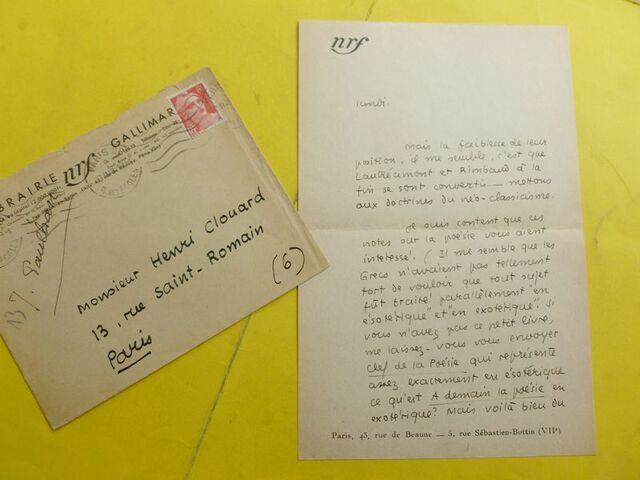 LIBRAIRIE nrf GALLIMARD
PARIS
J. Paulhan
Monsieur Henri Clouard
13, rue Saint-Romain
(6)
Paris
nrf
lundi.
Mais la faiblesse de leur
position, il me semble, c'est que
Lautréamont et Rimbaud à la
fin se sont convertis — mettons
aux doctrines du néo-classicisme.
Je suis content que ces
notes sur la poésie vous aient
intéressé. (Il me semble que les
Grecs n'avaient pas tellement
tort de vouloir que tout sujet
fût traité parallèlement "en
ésotérique" et "en exotérique". Si
vous n'avez pas ce petit livre,
me laissez-vous vous envoyer
Clef de la Poésie qui représente
assez exactement en ésotérique
ce qu'est A demain la poésie en
exotérique? Mais voilà bien du
Paris, 43, rue de Beaune — 5, rue Sébastien-Bottin (VIIe)